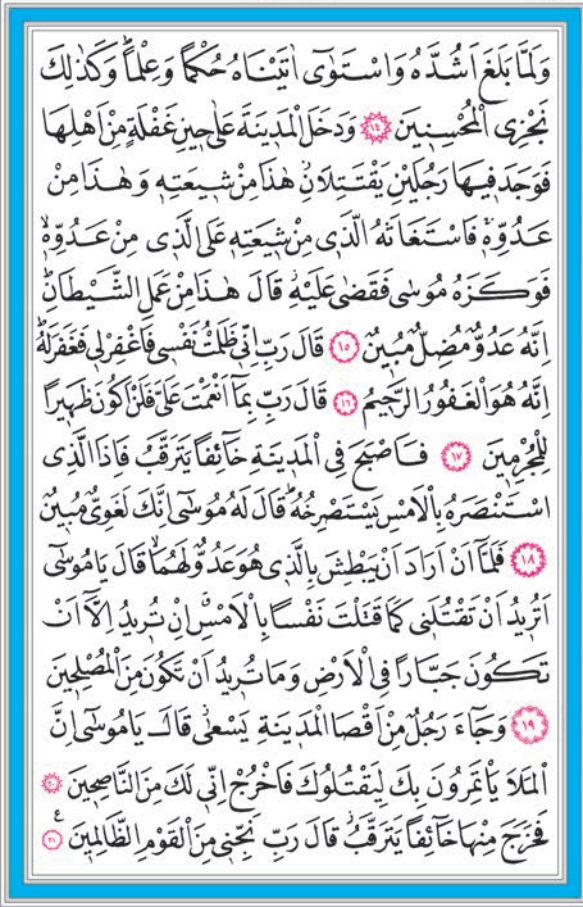 وَلَمَّا بَلَغَ اَشُدَّهُ وَاسْتَوٰٓى اٰتَيْنَاهُ حُكْمًا وَعِلْمًاۜ وَكَذٰلِكَ
نَجْزِى الْمُحْسِنٖينَ ﴿١٤﴾ وَدَخَلَ الْمَدٖينَةَ عَلٰى حٖينِ غَفْلَةٍ مِنْ اَهْلِهَا
فَوَجَدَ فٖيهَا رَجُلَيْنِ يَقْتَتِلَانِۘ هٰذَا مِنْ شٖيعَتِهٖ وَهٰذَا مِنْ
عَدُوِّهٖۚ فَاسْتَغَاثَهُ الَّذٖى مِنْ شٖيعَتِهٖ عَلَى الَّذٖى مِنْ عَدُوِّهٖۙ
فَوَكَزَهُ مُوسٰى فَقَضٰى عَلَيْهِۘ قَالَ هٰذَا مِنْ عَمَلِ الشَّيْطَانِۜ
اِنَّهُ عَدُوٌّ مُضِلٌّ مُبٖينٌ ﴿١٥﴾ قَالَ رَبِّ اِنّٖى ظَلَمْتُ نَفْسٖى فَاغْفِرْلٖى فَغَفَرَ لَهُۜ
اِنَّهُ هُوَ الْغَفُورُ الرَّحٖيمُ ﴿١٦﴾ قَالَ رَبِّ بِمَٓا اَنْعَمْتَ عَلَىَّ فَلَنْ اَكُونَ ظَهٖيرًا
لِلْمُجْرِمٖينَ ﴿١٧﴾ فَاَصْبَحَ فِى الْمَدٖينَةِ خَٓائِفًا يَتَرَقَّبُ فَاِذَا الَّذِى
اسْتَنْصَرَهُ بِالْاَمْسِ يَسْتَصْرِخُهُۜ قَالَ لَهُ مُوسٰٓى اِنَّكَ لَغَوِىٌّ مُبٖينٌ
﴿١٨﴾ فَلَمَّٓا اَنْ اَرَادَ اَنْ يَبْطِشَ بِالَّذٖى هُوَ عَدُوٌّ لَهُمَاۙ قَالَ يَا مُوسٰٓى
اَتُرٖيدُ اَنْ تَقْتُلَنٖى كَمَا قَتَلْتَ نَفْسًا بِالْاَمْسِۗ اِنْ تُرٖيدُ اِلَّٓا اَنْ
تَكُونَ جَبَّارًا فِى الْاَرْضِ وَمَا تُرٖيدُ اَنْ تَكُونَ مِنَ الْمُصْلِحٖينَ
﴿١٩﴾ وَجَٓاءَ رَجُلٌ مِنْ اَقْصَا الْمَدٖينَةِ يَسْعٰىۘ قَالَ يَا مُوسٰٓى اِنَّ
الْمَلَاَ يَأْتَمِرُونَ بِكَ لِيَقْتُلُوكَ فَاخْرُجْ اِنّٖى لَكَ مِنَ النَّاصِحٖينَ ﴿٢٠﴾
فَخَرَجَ مِنْهَا خَٓائِفًا يَتَرَقَّبُۘ قَالَ رَبِّ نَجِّنٖى مِنَ الْقَوْمِ الظَّالِمٖينَ ﴿٢١﴾ ع